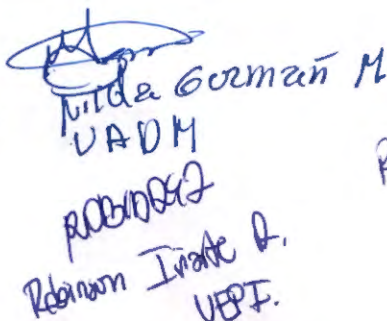 Nilda Guzmán M
UADM
Robinson Iriarte R.
UEPI.